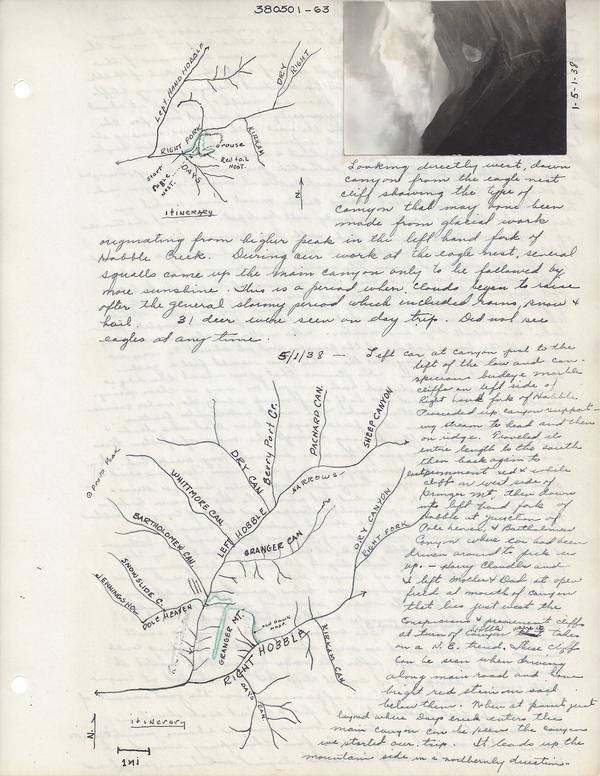 380501-63
LEFT HAND HOBBLE
DRY
RIGHT
RIGHT FORK
KIRKAM
grouse
Red tail
NEST.
Start
Eagle
NEST.
DAYS
N
ITINERARY
1-5-1-38
Looking directly west, down
canyon from the eagle nest
cliff showing the type of
canyon that may have been
made from glacial work
originating from higher peak in the left hand fork of
Hobble Creek. During our work at the eagle nest, several
squalls came up the main canyon only to be followed by
more sunshine. This is a period when clouds began to raise
after the general stormy period which included rains, snow &
hail. 31 deer were seen on day trip. Did not see
eagles at any time.
5/1/38 — Left car at canyon just to the
left of the low and con-
spicuous marble
cliffs on left side of
Right hand fork of Hobble.
Proceeded up canyon support-
ing stream to head and then
on ridge. Traveled its
entire length to the south
then back again to
prominent red & white
cliff on west side of
Granger Mt. then down
into left hand fork of
Hobble at junction of
Pole heaven & Bartholomew
Canyon where car had been
driven around to pick us
up. — Harry Chandler and
I left Mother & Dad at open
field at mouth of canyon
that lies just west the
conspicuous & prominent cliffs
at turn of canyon takes
on a N.E. trend. These cliffs
can be seen when driving
along main road and have
bright red stain on soil
below them. When at point just
beyond where Days creek enters the
main canyon can be seen the canyon
we started our trip. It leads up the
mountain side in a northernly direction.
Provo Peak
WHITTMORE CAN.
DRY CAN.
Berry Port Cr.
PACHARD CAN.
SHEEP CANYON
NARROWS
BARTHOLOMEW CAN.
LEFT HOBBLE
GRANGER CAN
DRY CANYON
RIGHT FORK
SNOWSLIDE C.
JENNINGS HO.
POLE HEAVEN
GRANGER MT.
OLD HAWK
NEST.
RIGHT HOBBLE
KIRKAM CAN.
DAYS CAN.
N
itinerary
1 mi